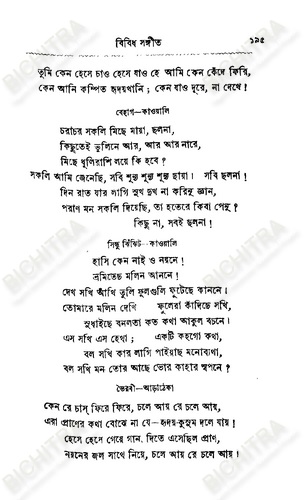 বিবিধ সঙ্গীত ১৯৫
তুমি কেন হেসে চাও হেসে যাও হে আমি কেন কেঁদে ফিরি,
কেন আনি কম্পিত হৃদয়খানি; কেন যাও দূরে, না দেখে!
বেহাগ—কাওয়ালি
চরাচর সকলি মিছে মায়া, ছলনা!
কিছুতেই ভুলিনে আর, আর আর নারে,
মিছে ধূলিরাশি লয়ে কি হবে?
সকলি আমি জেনেছি, সবি শূন্য শূন্য শূন্য ছায়া। সবি ছলনা!
দিন রাত যার লাগি সুখ দুখ না করিনু জ্ঞান,
পরাণ মন সকলি দিয়েছি, তা হতেরে কিবা পেনু?
কিছু না, সবই ছলনা!
সিন্ধু ঝিঁঝিট—কাওয়ালি
হাসি কেন নাই ও নয়নে!
ভ্রমিতেছ মলিন আননে!
দেখ সখি আঁখি তুলি ফুলগুলি ফুটেছে কাননে।
তোমারে মলিন দেখি ফুলেরা কাঁদিছে সখি,
সুধাইছে বনলতা কত কথা আকুল বচনে।
এস সখি এস হেথা; একটি কহগো কথা,
বল সখি কার লাগি পাইয়াছ মনোব্যথা,
বল সখি মন তোর আছে ভোর কাহার স্বপনে?
ভৈরবী—আড়াঠেকা
কেন রে চাস্ ফিরে ফিরে, চলে আয় রে চলে আয়,
এরা প্রাণের কথা বোঝে না যে—হৃদয়-কুসুম দলে যায়!
হেসে হেসে গেয়ে গান, দিতে এসেছিল প্রাণ,
নয়নের জল সাথে নিয়ে, চলে আয় রে চলে আয়!
BICHITRA